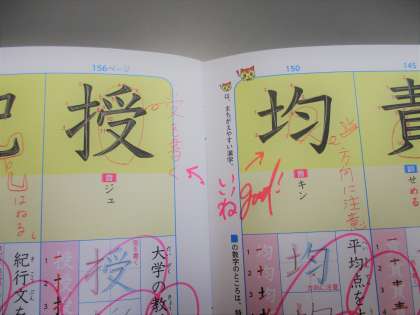 156ページ
150
145
責
均
授
は、まちがえやすい漢字。
音
キン
訓
せめる
音
ジュ
方向に注意
good!
いいね
はねる
の数字のところは、特
平均点を
均
授
大学の教
紀行文を